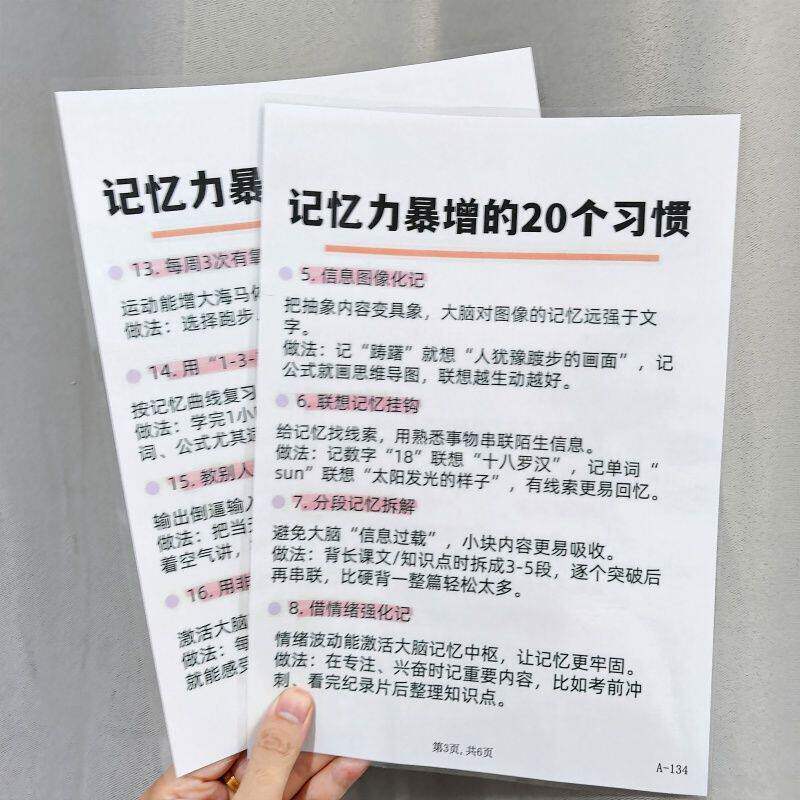 记忆力暴
13. 每周3次有
运动能增大海马体
做法：选择跑步、
14. 用“1-3-
按记忆曲线复习
做法：学完1小
词、公式尤其适
15. 教别人
输出倒逼输入
做法：把当天
着空气讲，
16. 用非
激活大脑
做法：每
就能感受
记忆力暴增的20个习惯
5. 信息图像化记
把抽象内容变具象，大脑对图像的记忆远强于文
字。
做法：记“踌躇”就想“人犹豫踱步的画面”，记
公式就画思维导图，联想越生动越好。
6. 联想记忆挂钩
给记忆找线索，用熟悉事物串联陌生信息。
做法：记数字“18”联想“十八罗汉”，记单词“
sun”联想“太阳发光的样子”，有线索更易回忆。
7. 分段记忆拆解
避免大脑“信息过载”，小块内容更易吸收。
做法：背长课文/知识点时拆成3-5段，逐个突破后
再串联，比硬背一整篇轻松太多。
8. 借情绪强化记
情绪波动能激活大脑记忆中枢，让记忆更牢固。
做法：在专注、兴奋时记重要内容，比如考前冲
刺、看完纪录片后整理知识点。
第3页, 共6页
A-134